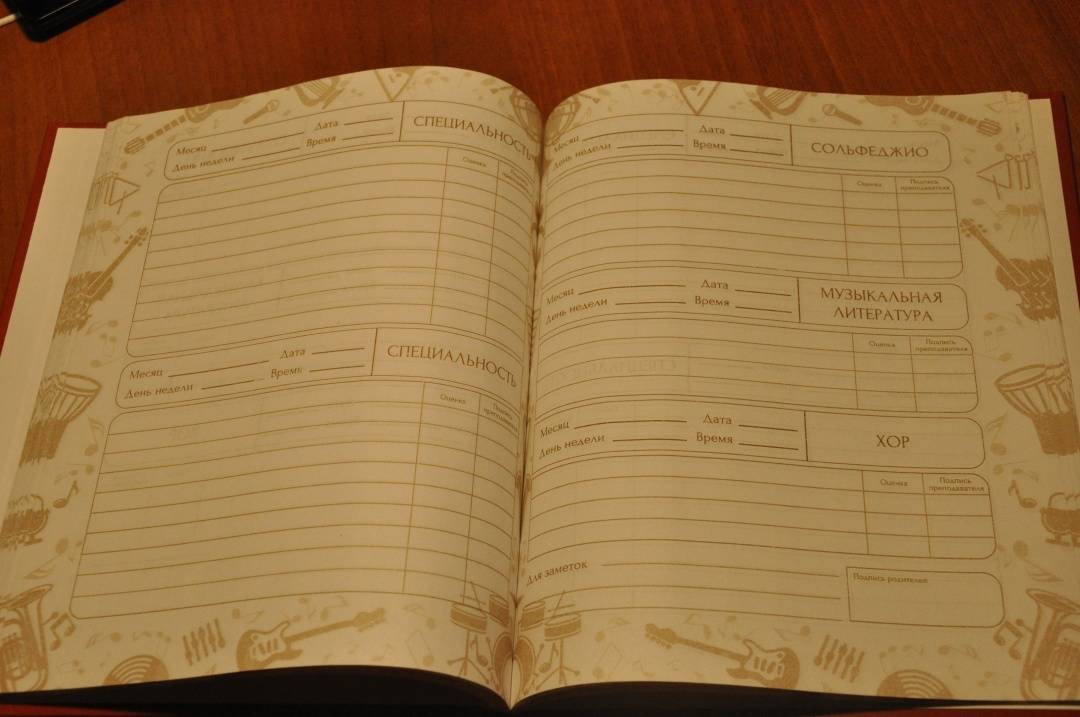 Месяц Дата
День недели Время
СПЕЦИАЛЬНОСТЬ
Оценка
Месяц Дата
День недели Время
СПЕЦИАЛЬНОСТЬ
Оценка Подпись
преподавателя
Месяц Дата
День недели Время
СОЛЬФЕДЖИО
Оценка Подпись
преподавателя
Месяц Дата
День недели Время
МУЗЫКАЛЬНАЯ
ЛИТЕРАТУРА
Оценка Подпись
преподавателя
Месяц Дата
День недели Время
ХОР
Оценка Подпись
преподавателя
Для заметок
Подпись родителей